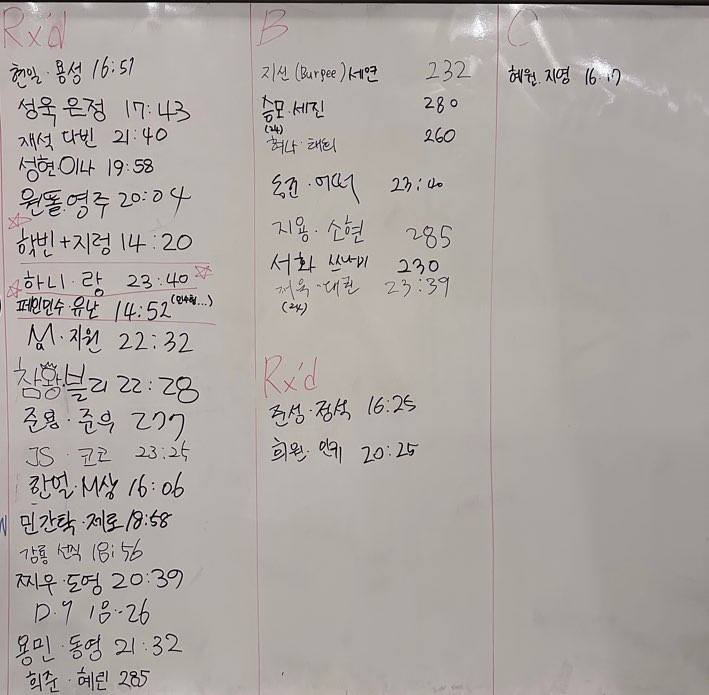 Rx'd
현일·용성 16:51
성욱 은정 17:43
재석 다빈 21:40
성현·이나 19:58
원돌·영주 20:04
학빈+지렁 14:20
하니·랑 23:40
페인민수·유난 14:52
M·지원 22:32
참왕·블리 22:28
준용·준우 277
JS·코코 23:25
한얼·M상 16:06
민간탁·제로 18:58
감룡 선찍 18:56
찌우·도영 20:39
D.Y
용민·동영 21:32
희준·혜린 285
B
지신(Burpee)세연 232
승모·세진 280
(24)
혀나·태티 260
23:40
지용·소현 285
서화 쓰나미 230
저욱·대현 23:39
(24)
Rx'd
준성·정석 16:25
희원·인키 20:25
C
혜원·지영 16:17